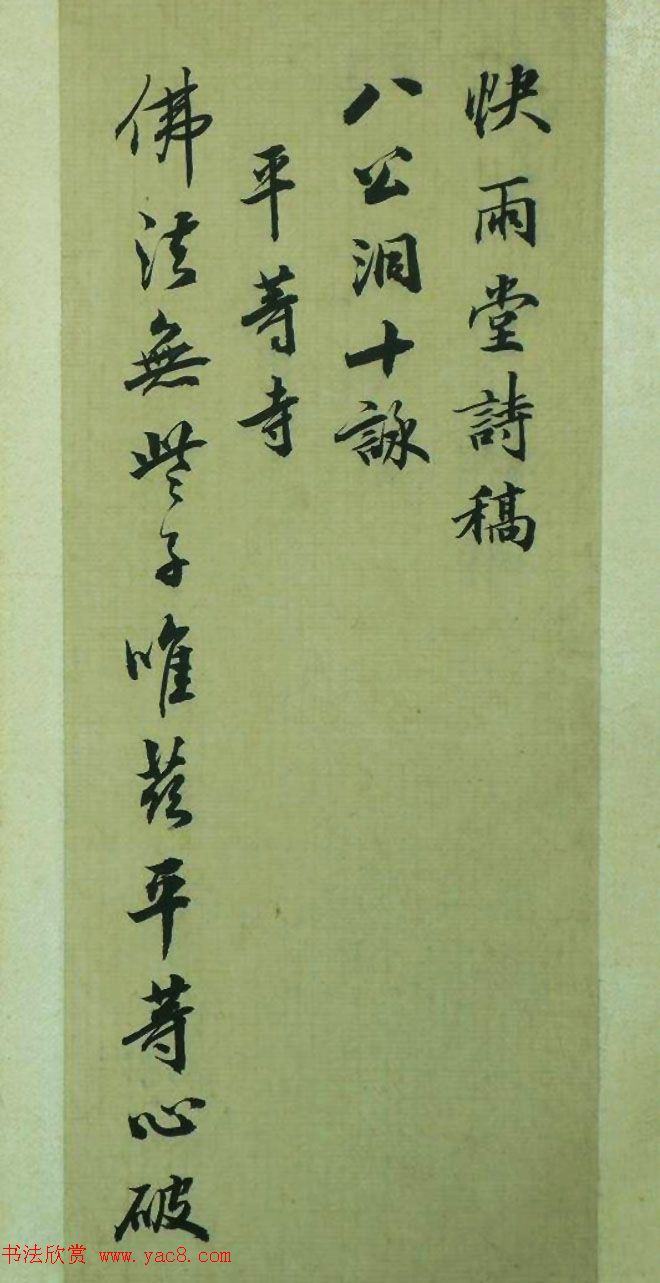 快雨堂詩稿
八公洞十詠
平等寺
佛法無些子唯茲平等心破
书法欣赏 www.yac8.com